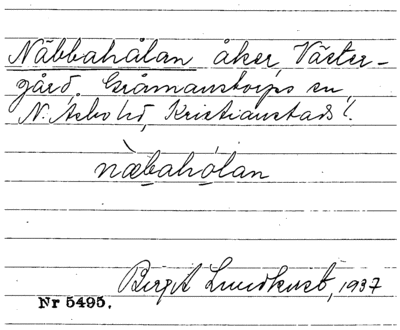 Näbbahålan åker, Väster-
gård, Gråmanstorps sn,
N. Åsbo hd, Kristianstads l.
næ̀bahólan
Birgit Lundkvist, 1937
Nr 5495.